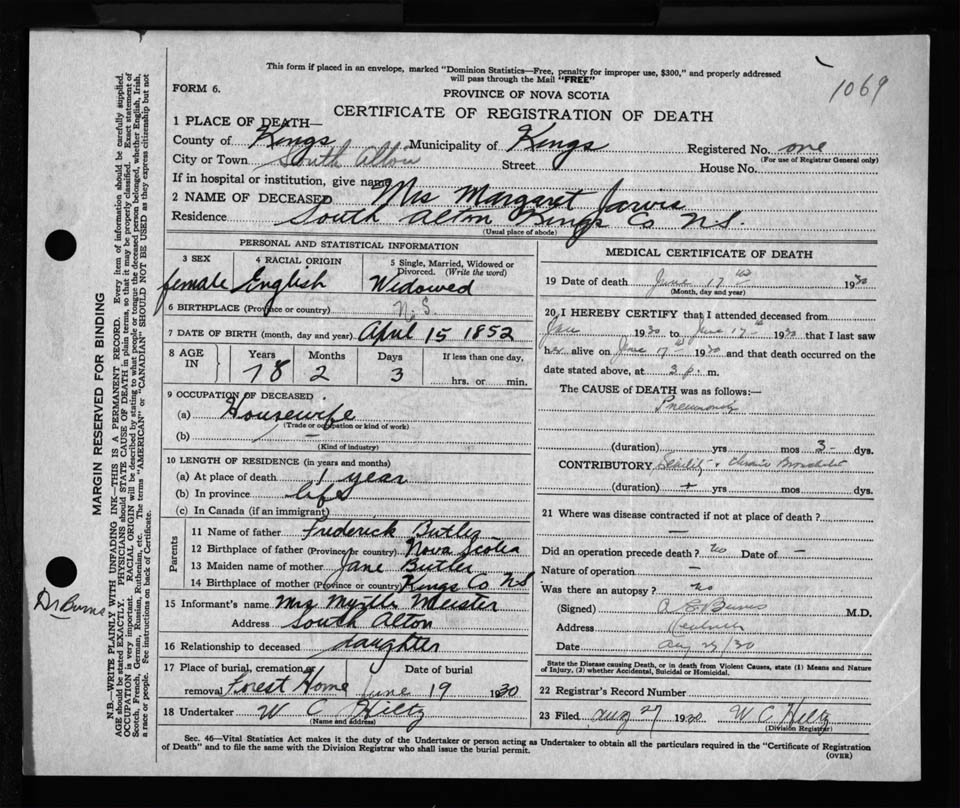 This form if placed in an envelope, marked "Dominion Statistics—Free, penalty for improper use, $300," and properly addressed
will pass through the Mail "FREE"
1069
FORM 6.
PROVINCE OF NOVA SCOTIA
CERTIFICATE OF REGISTRATION OF DEATH
1 PLACE OF DEATH—
County of Kings Municipality of Kings Registered No. one
(For use of Registrar General only)
City or Town South Alton Street House No.
If in hospital or institution, give name
2 NAME OF DECEASED Mrs Margaret Jarvis
Residence South Alton Kings Co N.S.
(Usual place of abode)
PERSONAL AND STATISTICAL INFORMATION
3 SEX 4 RACIAL ORIGIN 5 Single, Married, Widowed or Divorced. (Write the word)
female English Widowed
6 BIRTHPLACE (Province or country) N.S.
7 DATE OF BIRTH (month, day and year) April 15 1852
8 AGE IN Years Months Days If less than one day,
78 2 3 hrs. or min.
9 OCCUPATION OF DECEASED
(a) Housewife
(Trade or occupation or kind of work)
(b) —
(Kind of industry)
10 LENGTH OF RESIDENCE (in years and months)
(a) At place of death 1 year
(b) In province life
(c) In Canada (if an immigrant)
Parents
11 Name of father Frederick Butler
12 Birthplace of father (Province or country) Nova Scotia
13 Maiden name of mother Jane Butler
14 Birthplace of mother (Province or country) Kings Co NS
15 Informant's name Mrs Myrtle Meister
Address South Alton
16 Relationship to deceased daughter
17 Place of burial, cremation or removal Date of burial
Forest Home June 19 1930
18 Undertaker W C Hiltz
(Name and address)
MEDICAL CERTIFICATE OF DEATH
19 Date of death June 17th 1930
(Month, day and year)
20 I HEREBY CERTIFY that I attended deceased from
Jan 1930 to June 17th 1930 that I last saw
her alive on June 17th 1930 and that death occurred on the
date stated above, at 3 p. m.
The CAUSE of DEATH was as follows:—
Pneumonia
(duration) yrs mos 3 dys.
CONTRIBUTORY Senility + Chronic Bronchitis
(duration) + yrs mos dys.
21 Where was disease contracted if not at place of death?
—
Did an operation precede death? no Date of —
Nature of operation —
Was there an autopsy? no
(Signed) Burns M.D.
Address Kentville
Date Aug 29/30
State the Disease causing Death, or in death from Violent Causes, state (1) Means and Nature
of Injury, (2) whether Accidental, Suicidal or Homicidal.
22 Registrar's Record Number
23 Filed Aug 27 1930 W C Hiltz
(Division Registrar)
Sec. 46—Vital Statistics Act makes it the duty of the Undertaker or person acting as Undertaker to obtain all the particulars required in the "Certificate of Registration
of Death" and to file the same with the Division Registrar who shall issue the burial permit.
(OVER)
MARGIN RESERVED FOR BINDING
N.B.—WRITE PLAINLY WITH UNFADING INK—THIS IS A PERMANENT RECORD. Every item of information should be carefully supplied.
AGE should be stated EXACTLY. PHYSICIANS should STATE CAUSE OF DEATH in plain terms, so that it may be properly classified. Exact statement of
OCCUPATION is very important. RACIAL ORIGIN will be described by stating to what people or tongue the deceased person belonged, whether English, Irish,
Scotch, French, German, Russian, Ruthenian, etc. The terms "AMERICAN" or "CANADIAN" SHOULD NOT BE USED as they express citizenship but not
a race or people. See instructions on back of Certificate.
Dr Burns